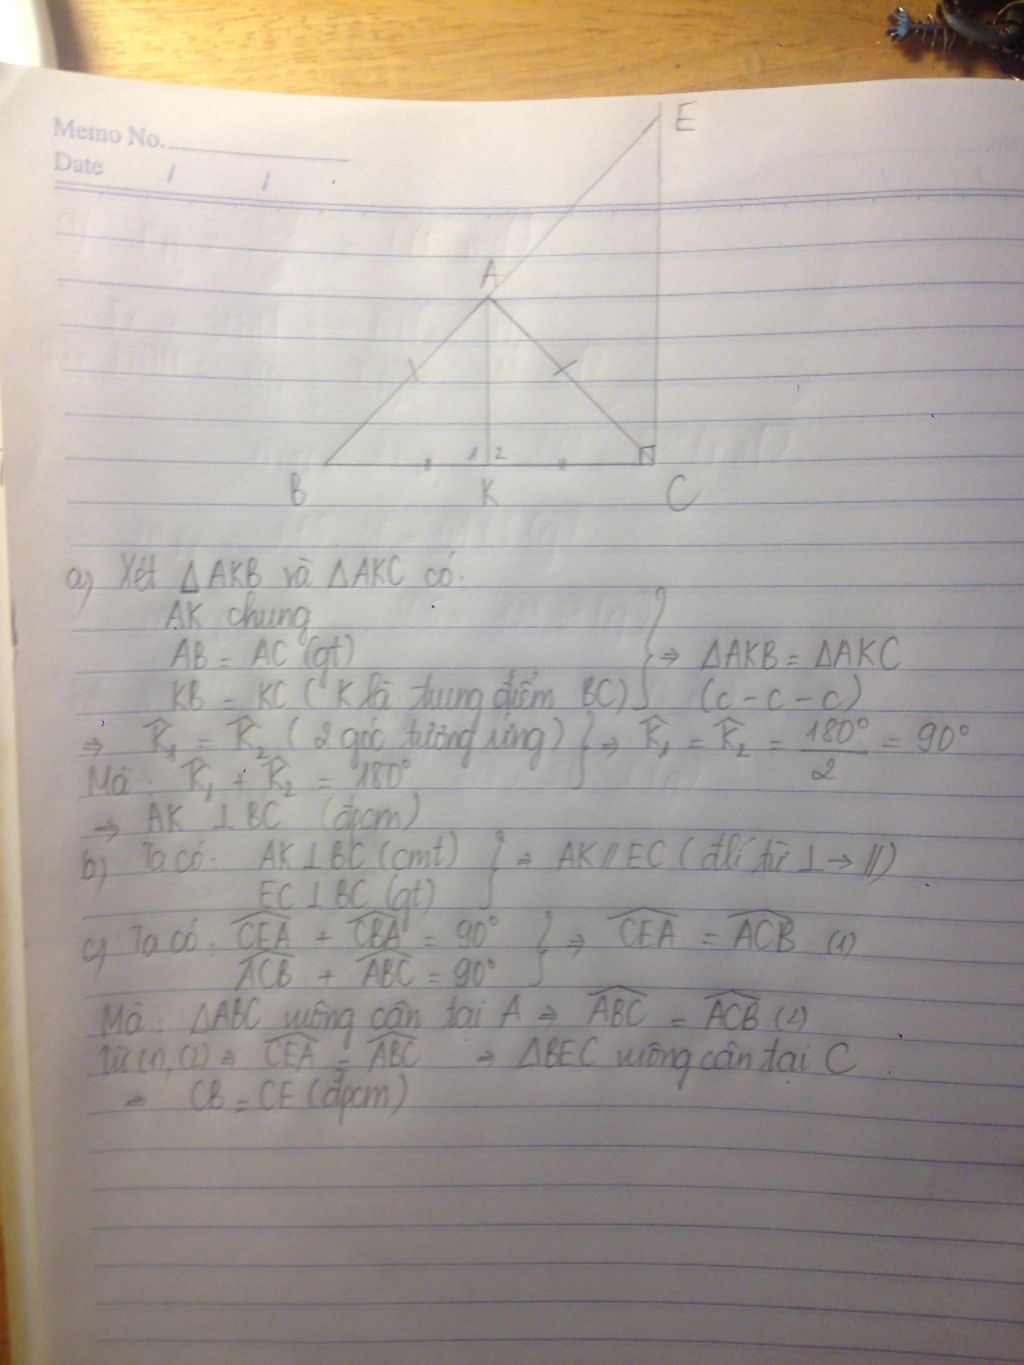 Memo No.
Date / /
E
A
1 2
B K C
a) Xét ΔAKB và ΔAKC có:
AK chung
AB = AC (gt)
KB = KC (K là trung điểm BC)
⇒ ΔAKB = ΔAKC
(c - c - c)
⇒ K̂₁ = K̂₂ (2 góc tương ứng)
Mà: K̂₁ + K̂₂ = 180°
⇒ K̂₁ = K̂₂ = 180°/2 = 90°
⇒ AK ⊥ BC (đpcm)
b) Ta có: AK ⊥ BC (cmt)
EC ⊥ BC (gt)
⇒ AK // EC (đlí từ ⊥ → //)
c) Ta có: CEA + CBA = 90°
ACB + ABC = 90°
⇒ CEA = ACB (1)
Mà: ΔABC vuông cân tại A ⇒ ABC = ACB (2)
Từ (1), (2) ⇒ CEA = ABC ⇒ ΔBEC vuông cân tại C
⇒ CB = CE (đpcm)